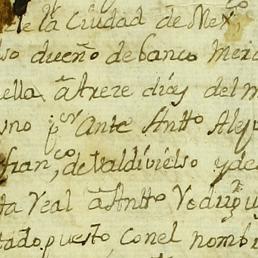 de la Ciudad de Mexco
dueño de banco
ella â treze dias del m
uno pr Ante Antto
franco, de Valdivielso y de
ta Real â Antto Rodrigu
tado, puesto con el nombr